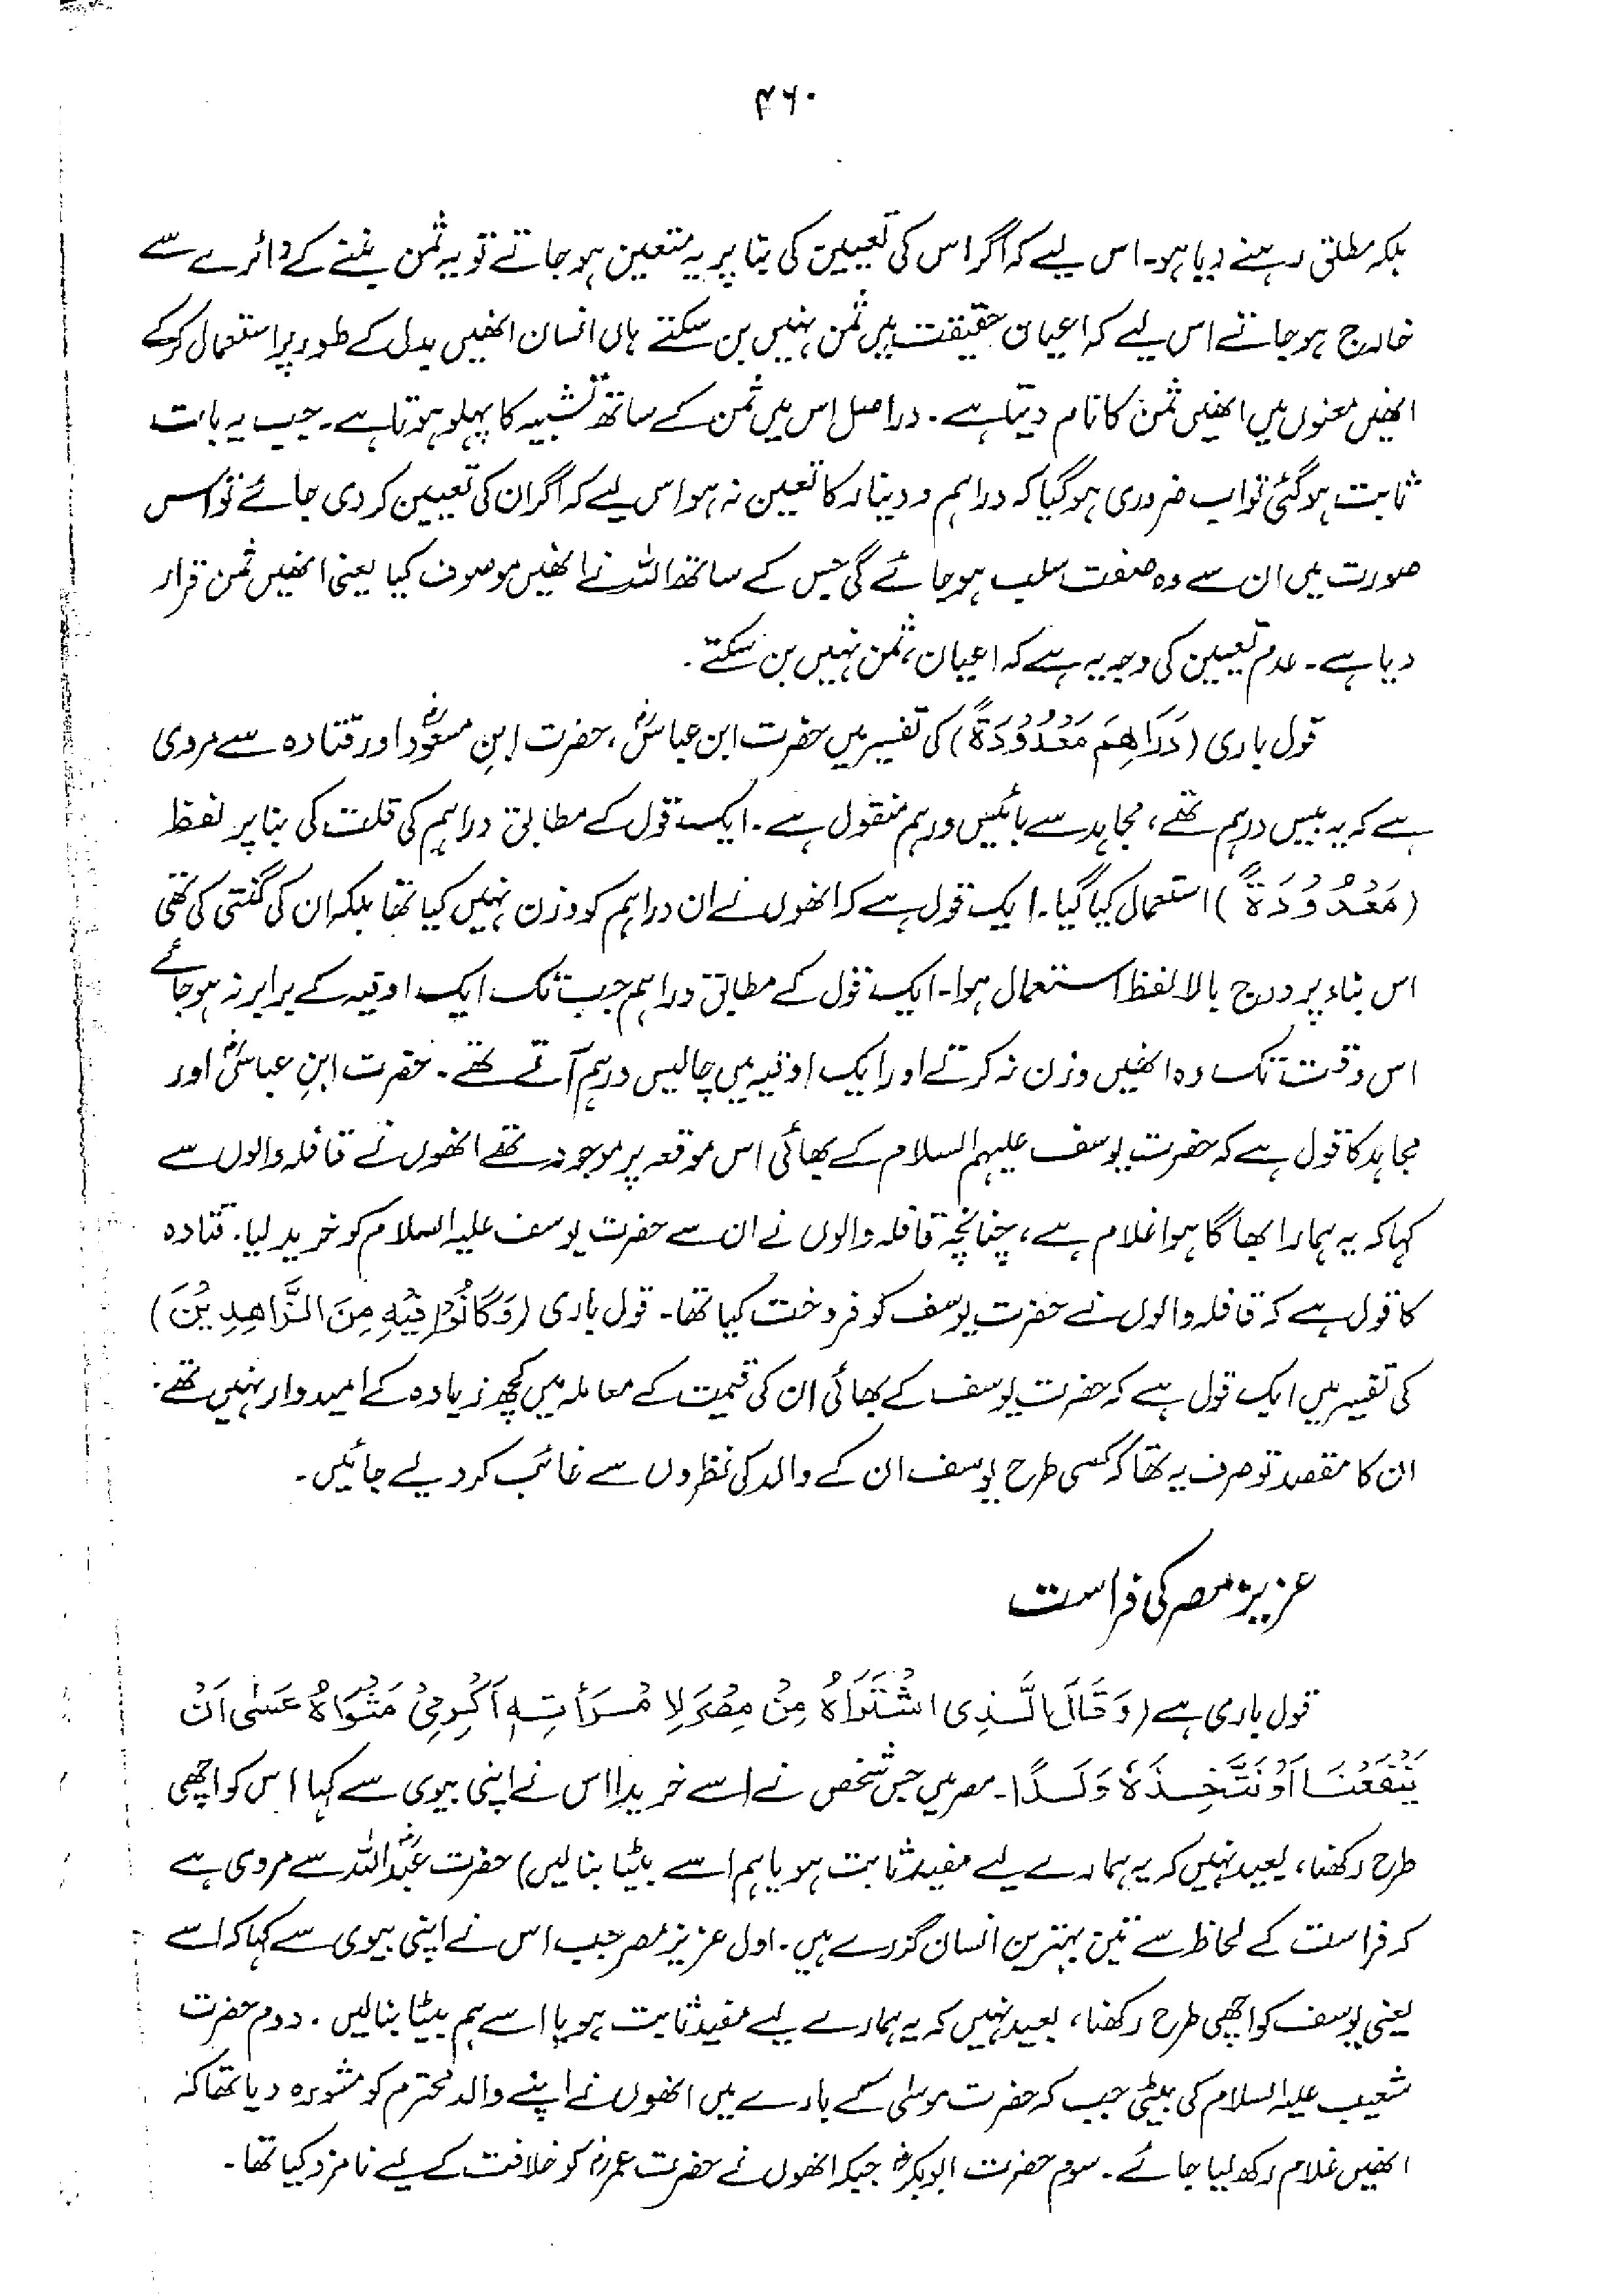 ۴۶۰
بلکہ مطلق رہنے دیا ہو۔ اس لیے کہ اگر اس کی تعیین کی بنا پر یہ متعین ہو جاتے تو یہ ثمن بننے کے دائرے سے
خارج ہو جاتے اس لیے کہ اعیان حقیقت میں ثمن نہیں بن سکتے ہاں انسان انھیں بدل کے طور پر استعمال کرکے
انھیں معنوں میں انھیں ثمن کا نام دیتا ہے۔ دراصل اس میں ثمن کے ساتھ تشبیہ کا پہلو ہوتا ہے۔ جب یہ بات
ثابت ہوگئی تو اب ضروری ہوگیا کہ دراہم و دینار کا تعین نہ ہو اس لیے کہ اگر ان کی تعیین کر دی جائے تو اس
صورت میں ان سے وہ صفت سلب ہو جائے گی جس کے ساتھ اللہ نے انھیں موصوف کیا یعنی انھیں ثمن قرار
دیا ہے۔ عدم تعیین کی وجہ یہ ہے کہ اعیان، ثمن نہیں بن سکتے۔
قول باری (دَرَاهِمَ مَعْدُوْدَةً) کی تفسیر میں حضرت ابن عباسؓ، حضرت ابنِ مسعودؓ اور قتادہ سے مروی
ہے کہ یہ بیس درہم تھے، مجاہد سے بائیس درہم منقول ہے۔ ایک قول کے مطابق دراہم کی قلت کی بنا پر لفظ
(مَعْدُوْدَةً) استعمال کیا گیا۔ ایک قول ہے کہ انھوں نے ان دراہم کو وزن نہیں کیا تھا بلکہ ان کی گنتی کی تھی
اس بناء پر درج بالا لفظ استعمال ہوا۔ ایک قول کے مطابق دراہم جب تک ایک اوقیہ کے برابر نہ ہو جاتے
اس وقت تک وہ انھیں وزن نہ کرتے اور ایک اوقیہ میں چالیس درہم آتے تھے۔ حضرت ابنِ عباسؓ اور
مجاہد کا قول ہے کہ حضرت یوسف علیہم السلام کے بھائی اس موقعہ پر موجود تھے انھوں نے قافلہ والوں سے
کہا کہ یہ ہمارا بھاگا ہوا غلام ہے، چنانچہ قافلہ والوں نے ان سے حضرت یوسف علیہ السلام کو خرید لیا۔ قتادہ
کا قول ہے کہ قافلہ والوں نے حضرت یوسف کو فروخت کیا تھا۔ قول باری (وَكَانُوْا فِيْهِ مِنَ الزَّاهِدِيْنَ)
کی تفسیر میں ایک قول ہے کہ حضرت یوسف کے بھائی ان کی قیمت کے معاملہ میں کچھ زیادہ کے امیدوار نہیں تھے۔
ان کا مقصد تو صرف یہ تھا کہ کسی طرح یوسف ان کے والد کی نظروں سے غائب کر دیے جائیں۔
عزیز مصر کی فراست
قول باری ہے (وَقَالَ الَّذِی اشْتَرَاهُ مِنْ مِصْرَ لِامْرَأَتِهٖ اَكْرِمِیْ مَثْوَاهُ عَسٰی اَنْ
يَّنْفَعَنَا اَوْ نَتَّخِذَهٗ وَلَدًا۔ مصر میں جس شخص نے اسے خریدا اس نے اپنی بیوی سے کہا اس کو اچھی
طرح رکھنا، بعید نہیں کہ یہ ہمارے لیے مفید ثابت ہو یا ہم اسے بیٹا بنا لیں) حضرت عبداللہؓ سے مروی ہے
کہ فراست کے لحاظ سے تین بہترین انسان گزرے ہیں۔ اول عزیز مصر جب اس نے اپنی بیوی سے کہا کہ اسے
یعنی یوسف کو اچھی طرح رکھنا، بعید نہیں کہ یہ ہمارے لیے مفید ثابت ہو یا اسے ہم بیٹا بنالیں۔ دوم حضرت
شعیب علیہ السلام کی بیٹی جب کہ حضرت موسٰی کے بارے میں انھوں نے اپنے والد محترم کو مشورہ دیا تھا کہ
انھیں غلام رکھ لیا جائے۔ سوم حضرت ابوبکرؓ جبکہ انھوں نے حضرت عمرؓ کو خلافت کے لیے نامزد کیا تھا۔